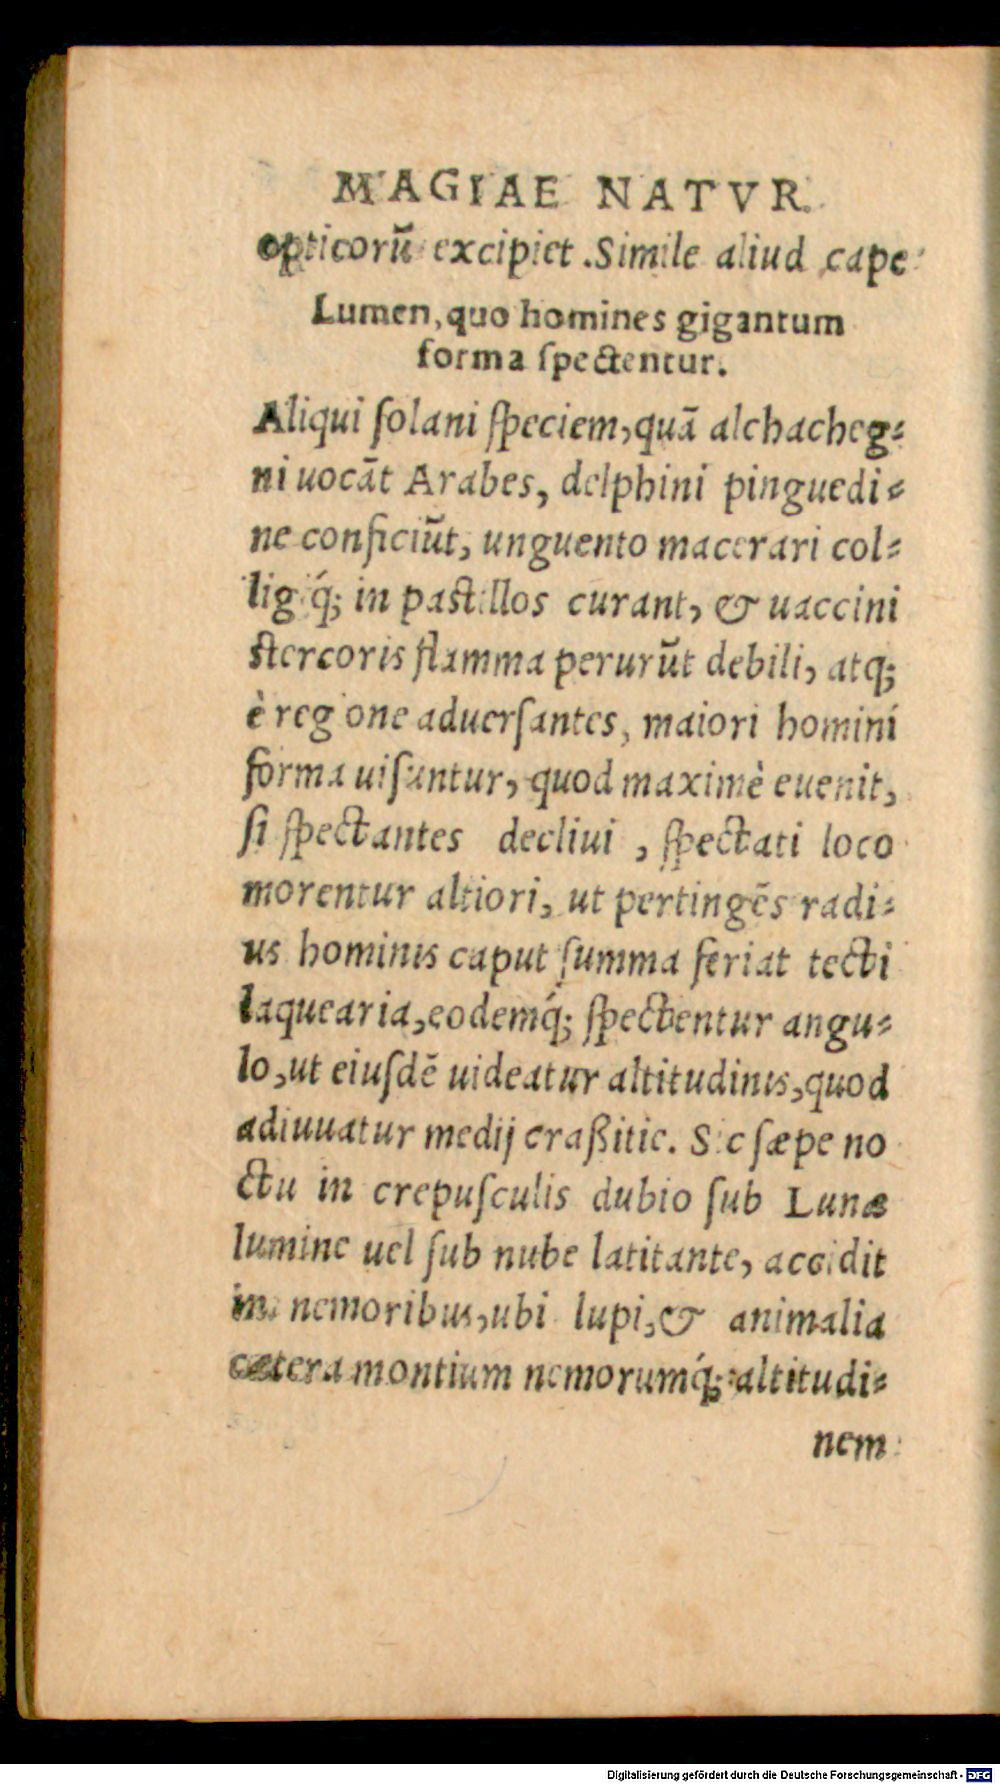 MAGIAE NATVR.
opticorũ excipiet. Simile aliud cape
Lumen, quo homines gigantum
forma ſpectentur.
Aliqui ſolani ſpeciem, quã alchacheg⸗
ni uocãt Arabes, delphini pinguedi⸗
ne conficiũt, unguento macerari col⸗
ligiq́; in pastillos curant, & uaccini
stercoris flamma perurũt debili, atq;
è regione aduerſantes, maiori homini
forma uiſuntur, quod maximè euenit,
ſi ſpectantes decliui , ſpectati loco
morentur altiori, ut pertingẽs radi⸗
us hominis caput ſumma feriat tecti
laquearia, eodemq́; ſpectentur angu⸗
lo, ut eiuſdẽ uideatur altitudinis, quod
adiuuatur medij craßitie. Sic ſæpe no
ctu in crepuſculis dubio ſub Lunæ
lumine uel ſub nube latitante, accidit
in nemoribus, ubi lupi, & animalia
cætera montium nemorumq́; altitudi⸗
nem
Digitalisierung gefördert durch die Deutsche Forschungsgemeinschaft - DFG